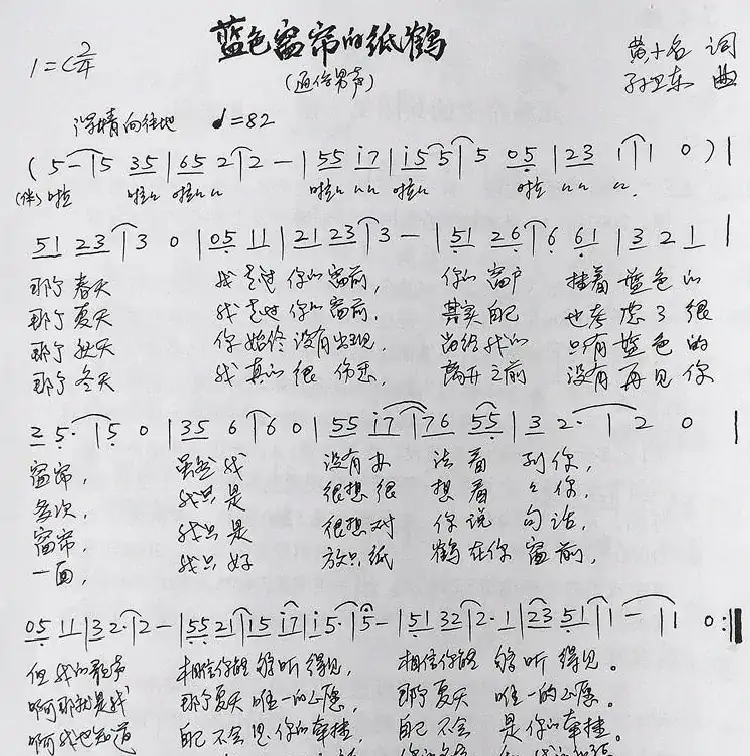 蓝色窗帘的纸鹤
1=C 2/4
(通俗男声)
黄小名 词
孙卫东 曲
深情向往地 ♩=82
( 5 - | 5 35 | 65 2 | 2 - | 55 i7 | i5 5 | 5 05 | 23 1 | 1 0 ) |
(伴) 啦 啦 啦 啦 啦 啦
51 23 | 3 0 | 05 11 | 21 23 | 3 - | 51 26 | 6 61 | 3 2 1 |
那个春天 我走过你的窗前, 你的窗户 挂着蓝色的
那个夏天 我走过你的窗前. 其实自己 也考虑了很
那个秋天 你始终没有出现. 留给我的 只有蓝色的
那个冬天 我真的很伤悲, 离开之前 没有再见你
2 5· | 5 0 | 35 6 | 6 0 | 55 i7 | 76 55 | 3 2· | 2 0 |
窗帘, 虽然我 没有办法看到你,
多次, 我只是 很想很想看看你,
窗帘 我只是 很想对你说句话,
一面, 我只好 放只纸鹤在你窗前,
05 11 | 32· | 2 - | 55 21 | 15 i7 | i5· | 5 - | 51 32 | 2· 1 | 23 51 | 1 - | 1 0 :‖
但我的歌声 相信你能够听得见, 相信你能够听得见。
啊那就是我 那个夏天唯一的心愿, 那个夏天 唯一的心愿。
啊我也知道 自己不会是你的牵挂, 自己不会 是你的牵挂。